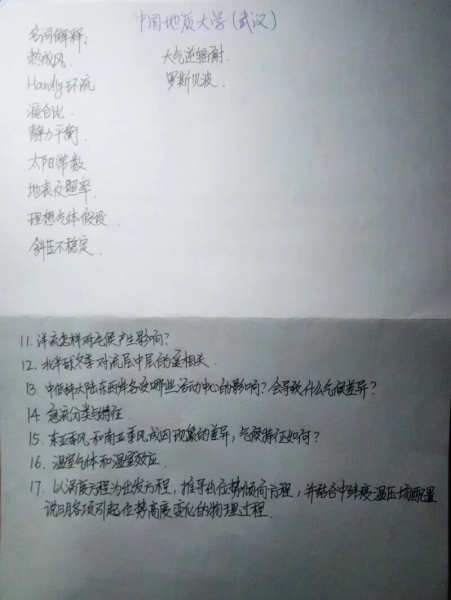 中国地质大学(武汉)
名词解释:
热成风.
大气逆辐射.
Hardly环流
罗斯贝波.
混合比.
静力平衡.
太阳常数
地表反照率.
理想气体假设.
斜压不稳定.
11. 洋流怎样对气候产生影响?
12. 北半球冬季对流层中层的遥相关.
13. 中纬大陆东西岸各受哪些活动中心的影响?会导致什么气候差异?
14. 急流分类与特征.
15. 东亚季风和南亚季风成因现象的差异,气候特征如何?
16. 温室气体和温室效应.
17. 以涡度方程为出发方程,推导出位势倾向方程,并结合中纬度温压场配置
说明各项引起位势高度变化的物理过程.